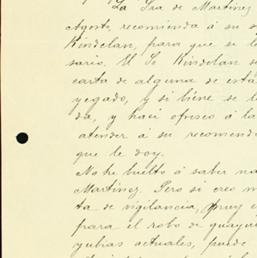 La Sra de Martinez
Agosto, recomienda á su s
Kindelan, para que se l
sario. El Sr Kindelan s
carta de alguna de está
yegado, y si biene se l
da, y haci ofresco á la
atender á su recomend
que le doy.
No he buelto á saber na
Martinez. Pero si creo m
ta de vigilancia, pruy e
para el robo de guayu
yubias actuales, puede